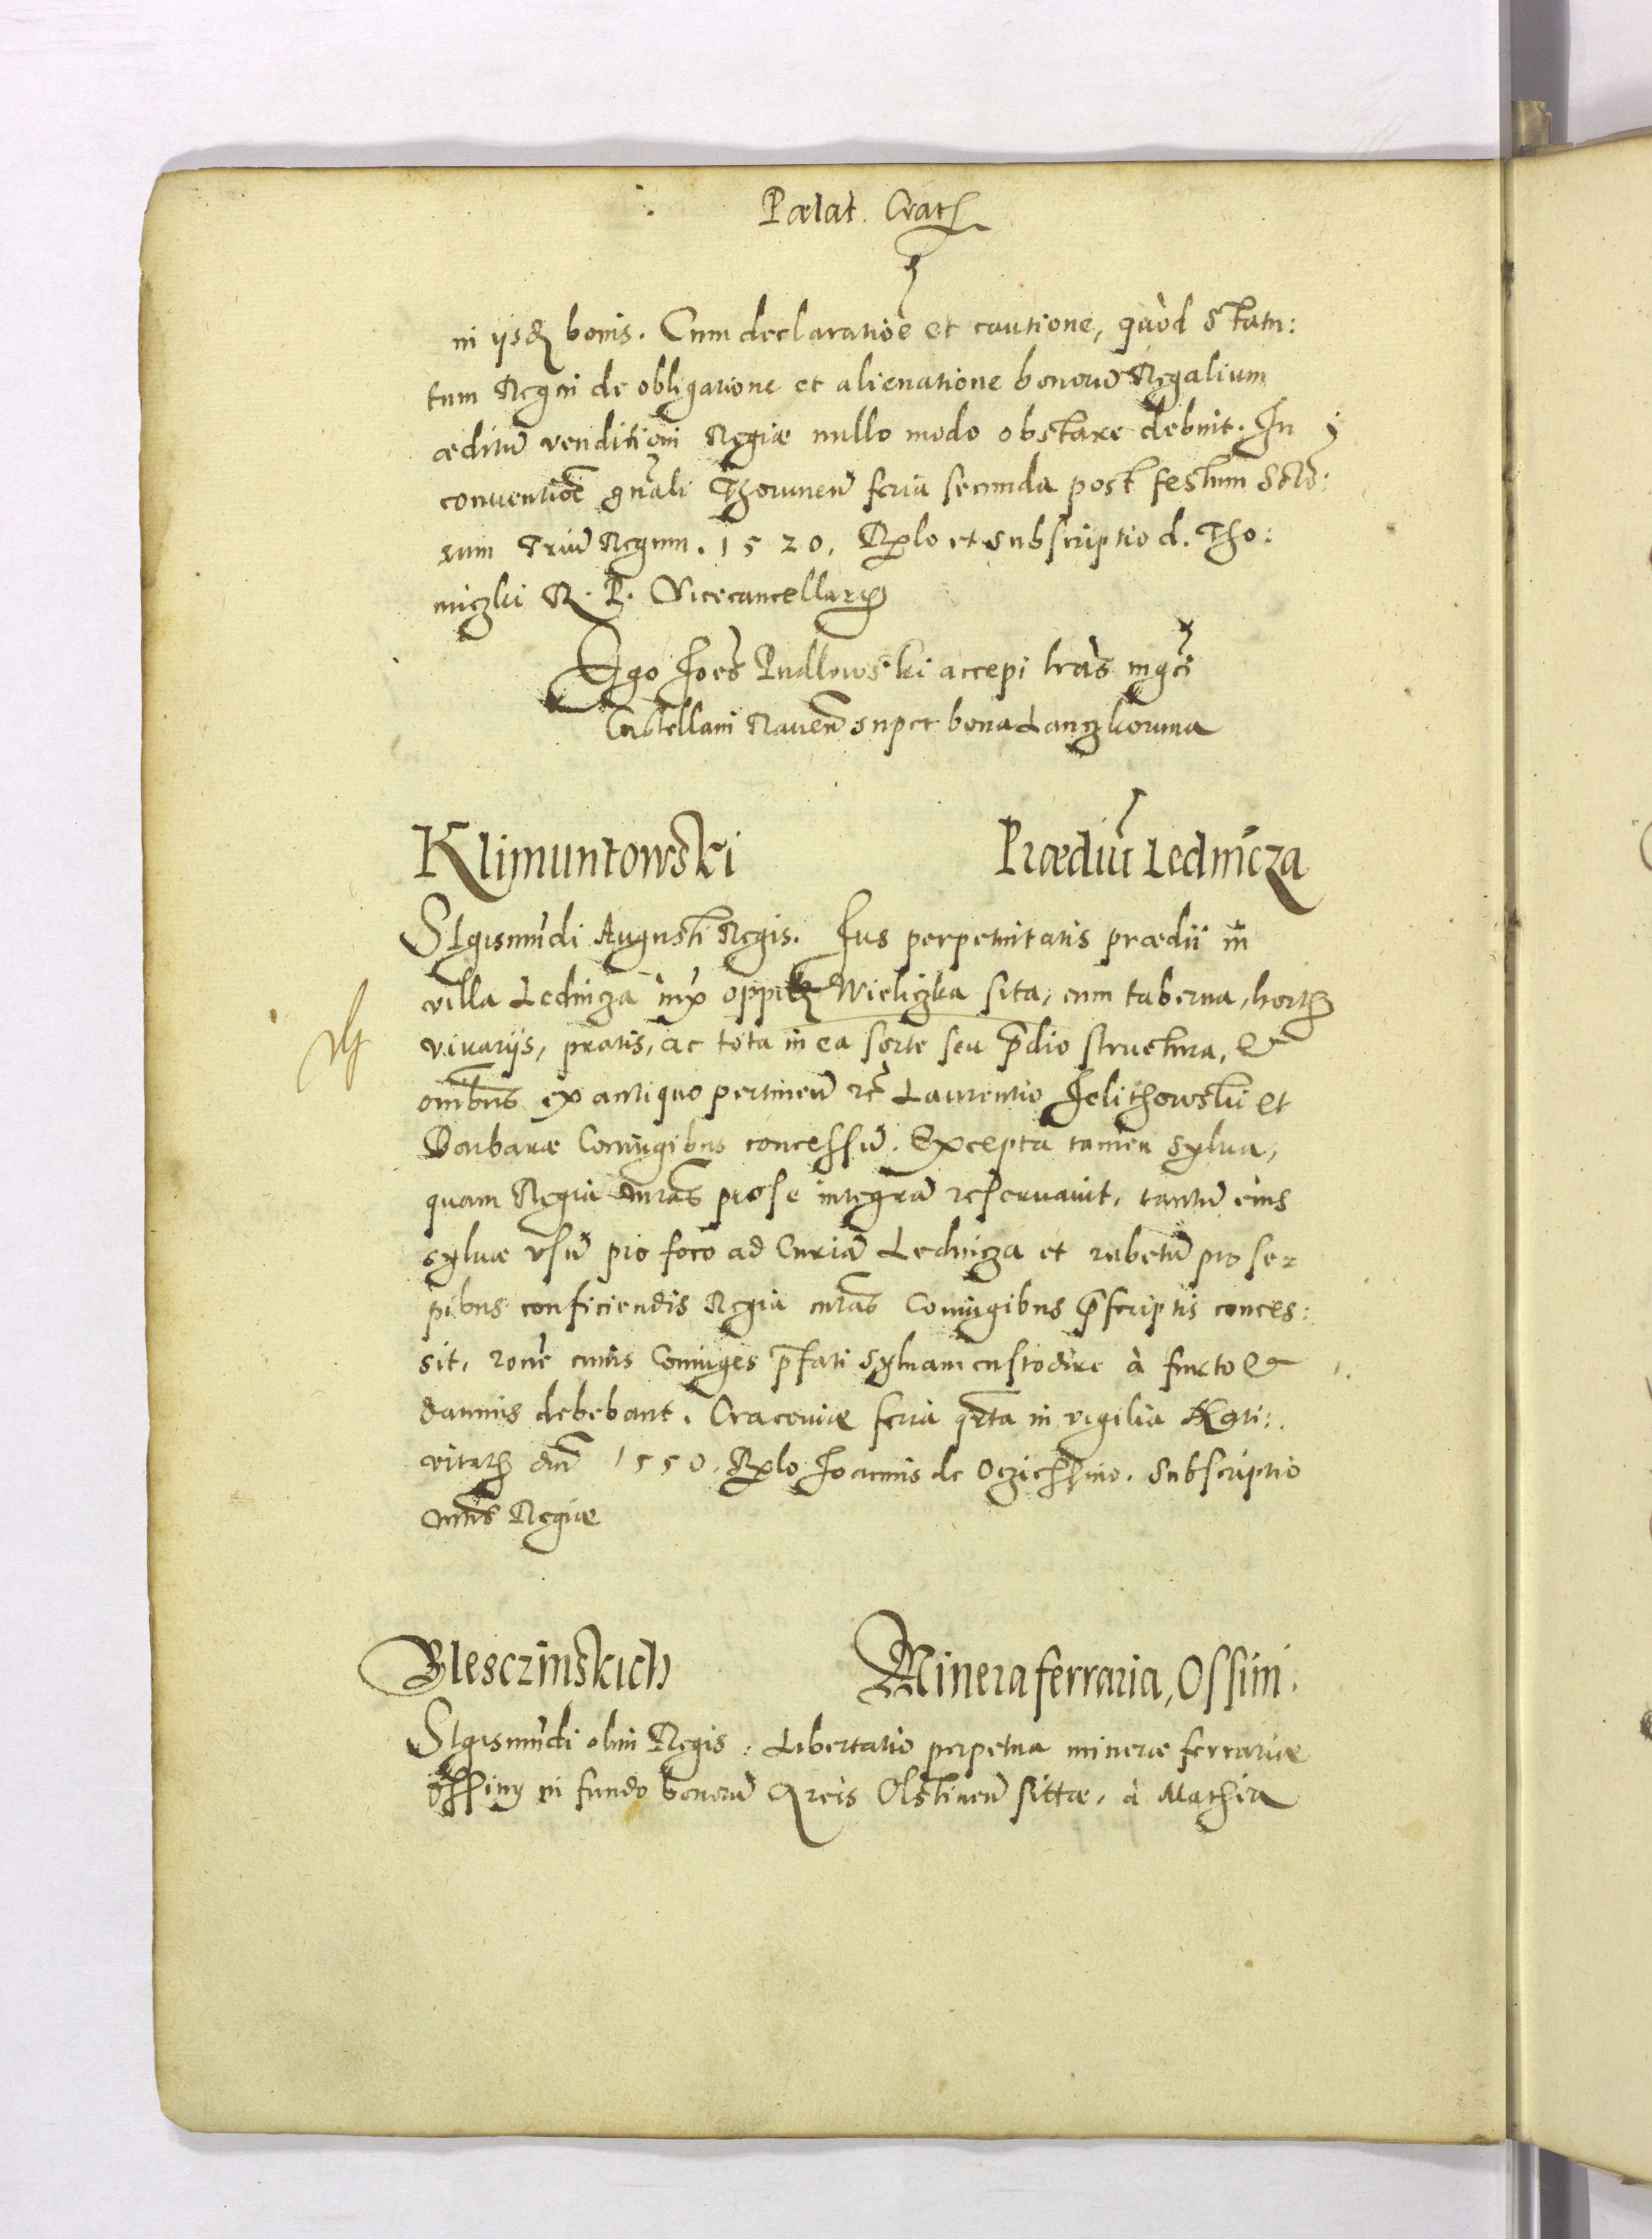 Palat. Crac
in iisdē bonis. Cum declaratiōe et cautione, quòd statu:
tum Regni de obligatione et alienatione bonorū Regalium
æditū venditioni Regiæ nullo modo obstare debuit. In
conuentiōe gn̄ali Thorunen̄ feria secunda post festum Scto:
rum Triū Regum. 1520. Rlo et subscriptio d. Tho:
miczki R. P. Vicecancellarij
Ego Joēs Rudlowski accepi lrās mgci
Castellani Rauen̄ super bona Lanczkoruna
Klijmuntowski
Prædiū Lednicza
SIgismūdi Augusti Regis. Jus perpetuitatis prædii in
villa Lednicza iux oppid Wieliczka sita, cum taberna, hortis
viuariis, pratis, ac tota in ea sorte seu p̄dio structura, &
om̄ibus ex antiquo pertinen̄ rc̄ Laurentio Jelithowski et
Barbaræ Coniugibus concessū. Excepta tamen sylua,
quam Regia mtās pro se integrā reseruauit, tantū eius
syluæ vsū pro foco ad Curiā Lednicza et rubetū pro se-
pibus conficiendis Regia mtās Coniugibus p̄scriptis conces:
sit, rone cuius Coniuges p̄fati syluam custodire à furto &
damnis debebant. Cracouiæ feria qrta in vigilia Nati:
vitatis dni 1550. Rlo Joannis de Oczieschino. Subscriptio
mtis Regiæ
Blesczinskich
Minera ferraria, Ossini.
SIgismūdi olim Regis. Libertatio perpetua mineræ ferrariæ
Ossiny in fundo bonorū Areis Olstinen̄ sittæ, à Mathia